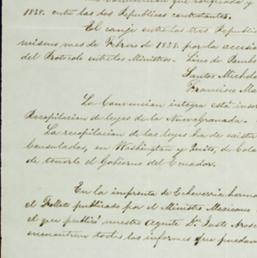 1838. entre las dos Republicas contratantes.
El canje entre las tres Republicas
mismo mes de Febrero de 1838. por la accesion
del Protocolo entre los Ministros. Lino de Pombo
Santos Michelena
Francisco Ma
La Convencion integra está inser
Recopilacion de leyes de la Nueva Granada.
La recopilacion de las leyes ha de existir
Consulados, en Washington y Quito, de Colo
de tenerla el Gobierno del Ecuador.
En la imprenta de Echeverria herma
el Folleto publicado por el Ministro Mexicano
el que publicó nuestro Agente Dr. Justo Arose
encuentran todos los informes que puedan